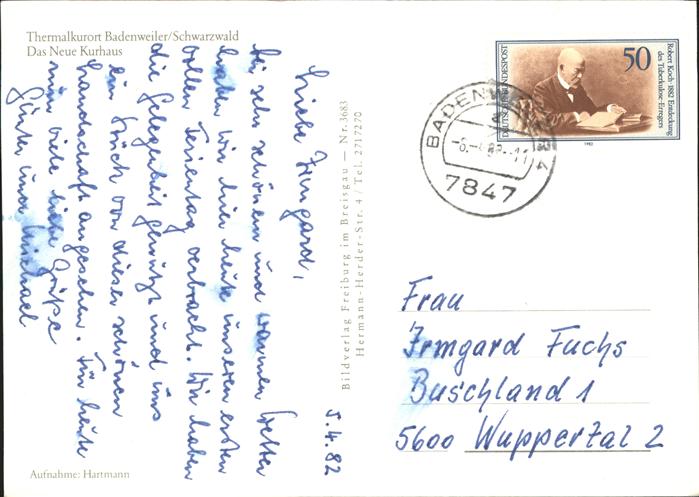 Thermalkurort Badenweiler/Schwarzwald
Das Neue Kurhaus
5.4.82
Liebe Irmgard,
bei sehr schönem und warmen Wetter
haben wir hier heute unseren ersten
vollen Ferientag verbracht. Wir haben
die Gelegenheit genützt und uns
ein Stück von dieser schönen
Landschaft angesehen. Für heute
nun viele liebe Grüße
Günter und Michael
Aufnahme: Hartmann
Bildverlag Freiburg im Breisgau — Nr. 3683
Hermann-Herder-Str. 4 / Tel. 2717270
DEUTSCHE BUNDESPOST
50
Robert Koch · 1882 Entdeckung
des Tuberkulose-Erregers
1982
BADENWEILER
7847
Frau
Irmgard Fuchs
Buschland 1
5600 Wuppertal 2